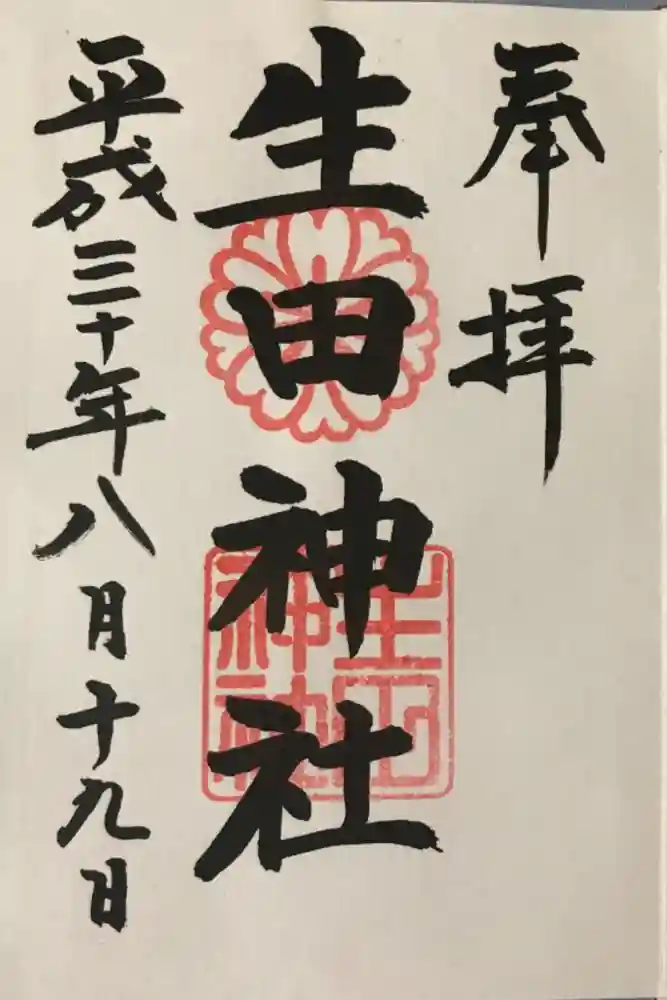 奉拝
生田神社
生田神社
平成三十年八月十九日